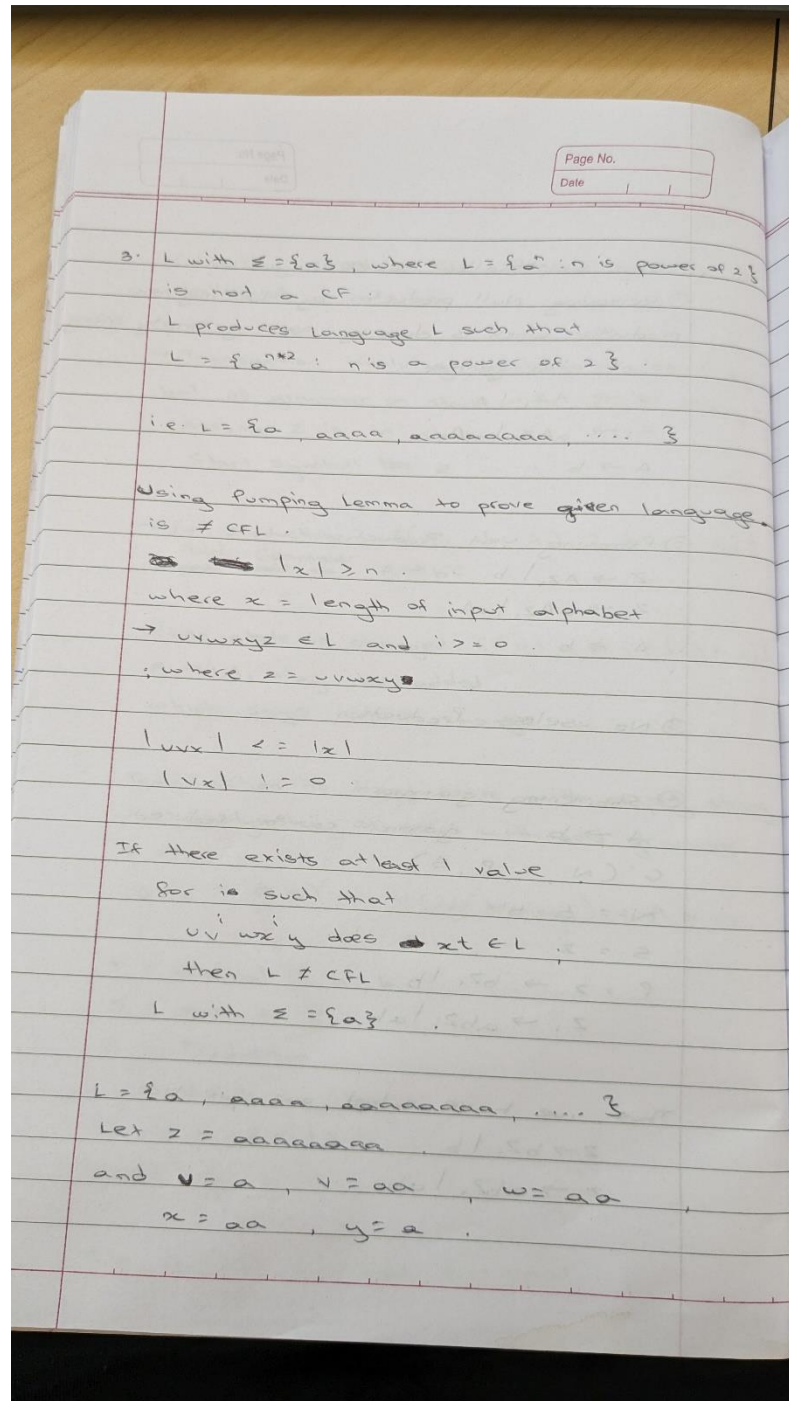 Page No.
Date
3. L with Σ = {a}, where L = {aⁿ : n is power of 2}
is not a CF.
L produces Language L such that
L = {a^(n*2) : n is a power of 2}.
i.e. L = {a, aaaa, aaaaaaaa, .... }
Using Pumping Lemma to prove given language
is ≠ CFL.
|x| ≥ n.
where x = length of input alphabet
→ uvwxyz ∈ L and i >= 0.
; where z = uvwxy
|uvx| <= |x|
|vx| != 0.
If there exists atleast 1 value
for i such that
uvⁱ wxⁱy does xt ∈ L ;
then L ≠ CFL
L with Σ = {a}.
L = {a, aaaa, aaaaaaaa, .... }
Let z = aaaaaaaa.
and v = a, v = aa, w = aa,
x = aa, y = a.